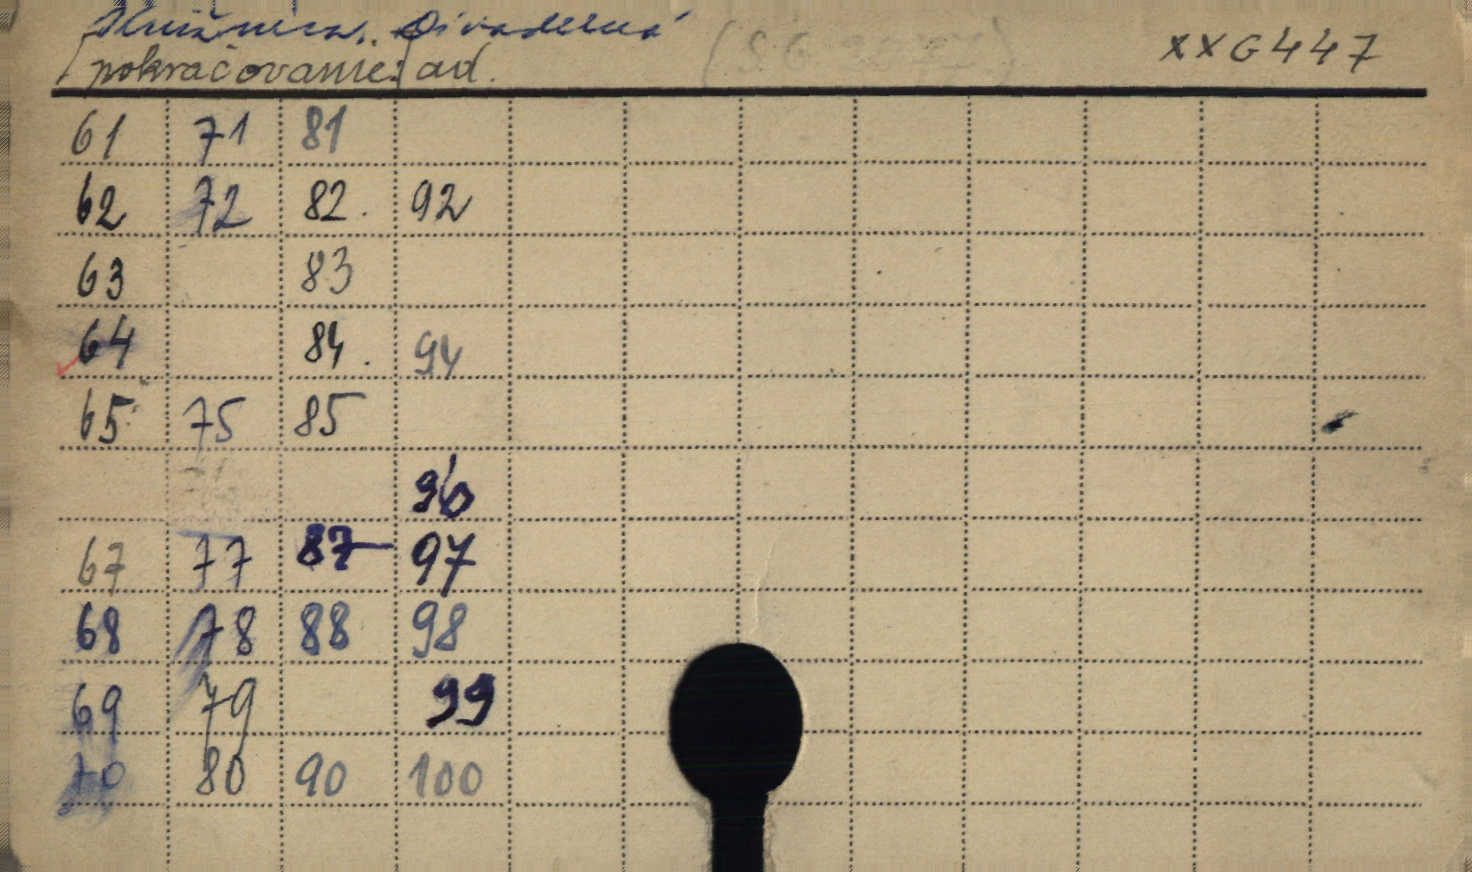 Knižnica. Divadelná
pokračovanie: ad.
XXG447
61 71 81
62 72 82. 92
63 83
64 84. 94
65 75 85
96
67 77 87 97
68 78 88 98
69 79 99
70 80 90 100